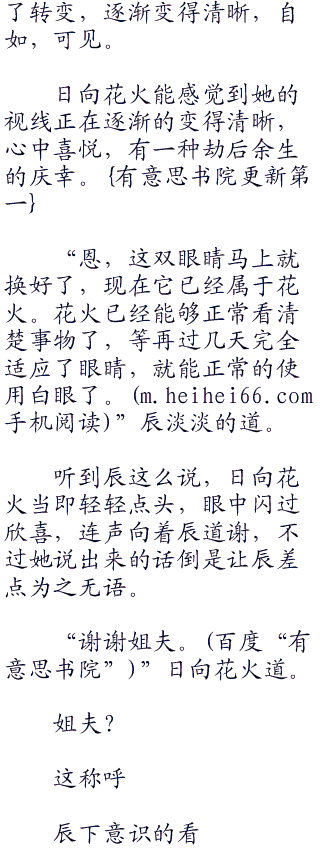 了转变，逐渐变得清晰，自
如，可见。
日向花火能感觉到她的
视线正在逐渐的变得清晰，
心中喜悦，有一种劫后余生
的庆幸。{有意思书院更新第
一}
“恩，这双眼睛马上就
换好了，现在它已经属于花
火。花火已经能够正常看清
楚事物了，等再过几天完全
适应了眼睛，就能正常的使
用白眼了。(m.heihei66.com
手机阅读)”辰淡淡的道。
听到辰这么说，日向花
火当即轻轻点头，眼中闪过
欣喜，连声向着辰道谢，不
过她说出来的话倒是让辰差
点为之无语。
“谢谢姐夫。(百度“有
意思书院”)”日向花火道。
姐夫？
这称呼
辰下意识的看